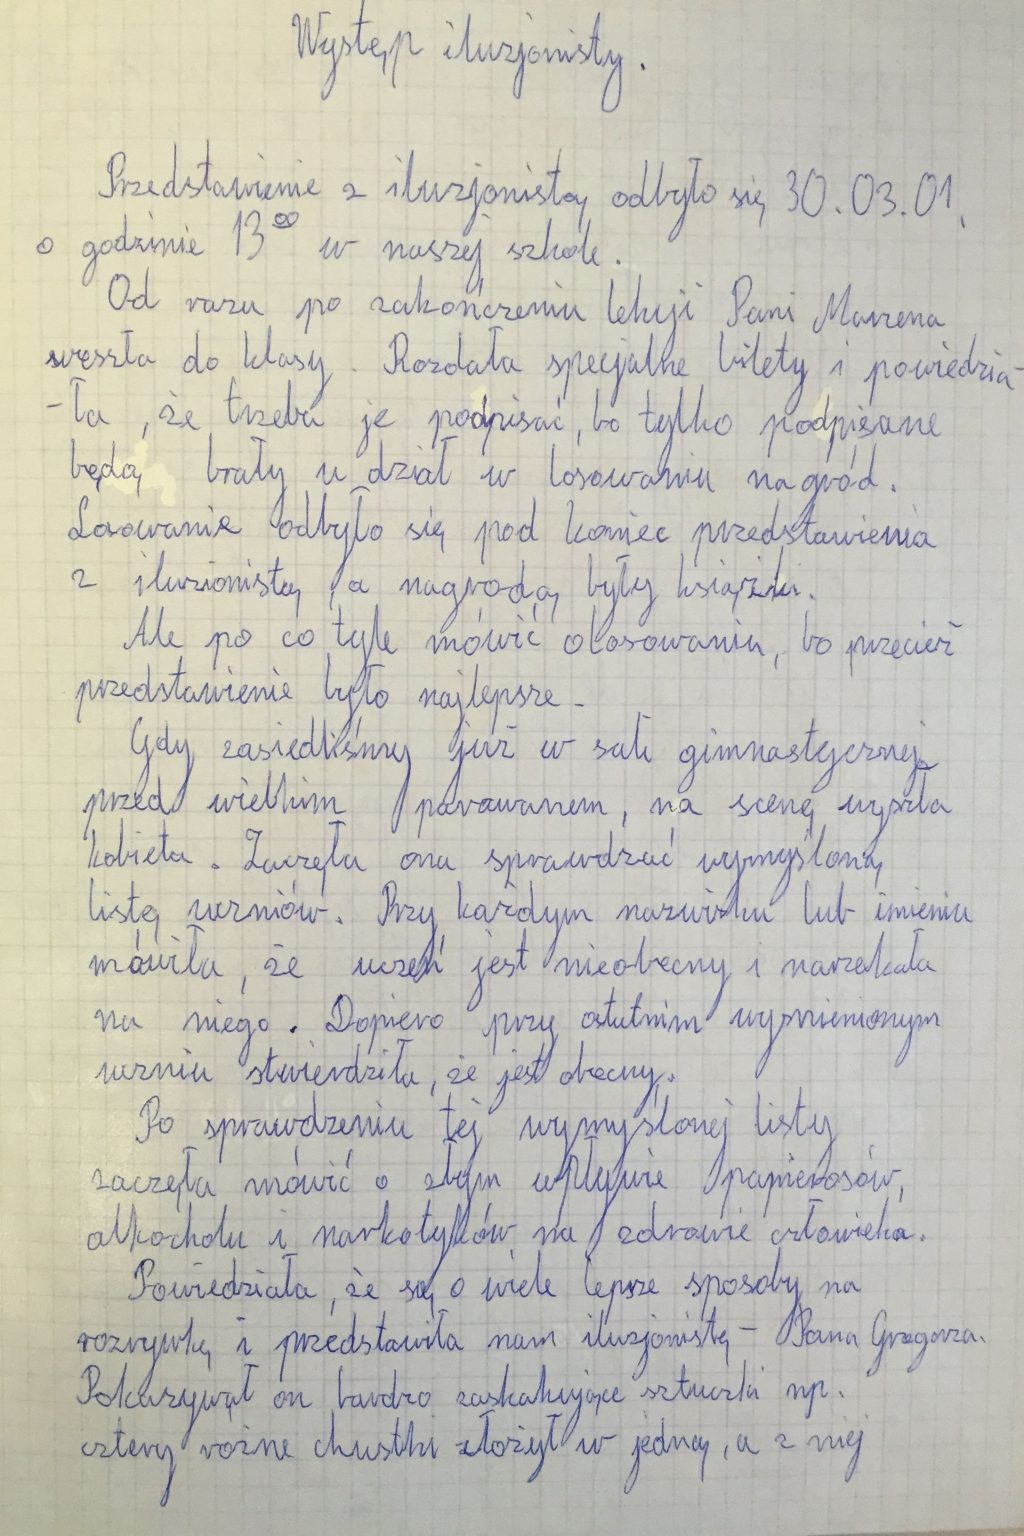 Występ iluzjonisty.
Przedstawienie z iluzjonistą odbyło się 30.03.01.
o godzinie 13⁰⁰ w naszej szkole.
Od razu po zakończeniu lekcji Pani Marzena
weszła do klasy. Rozdała specjalne bilety i powiedzia-
-ła, że trzeba je podpisać, bo tylko podpisane
będą brały u dział w losowaniu nagród.
Losowanie odbyło się pod koniec przedstawienia
z iluzionistą, a nagrodą były książki.
Ale po co tyle mówić o losowaniu, bo przecież
przedstawienie było najlepsze.
Gdy zasiedliśmy już w sali gimnastycznej
przed wielkim parawanem, na scenę wyszła
kobieta. Zaczęła ona sprawdzać wymyśloną
listę uczniów. Przy każdym nazwisku lub imieniu
mówiła, że uczeń jest nieobecny i narzekała
na niego. Dopiero przy ostatnim wymienionym
uczniu stwierdziła, że jest obecny.
Po sprawdzeniu tej wymyślonej listy
zaczęła mówić o złym wpływie papierosów,
alkocholu i narkotyków na zdrowie człowieka.
Powiedziała, że są o wiele lepsze sposoby na
rozrywkę i przedstawiła nam iluzjonistę - Pana Grzegorza.
Pokazywał on bardzo zaskakujące sztuczki np.
cztery różne chustki złożył w jedną, a z niej